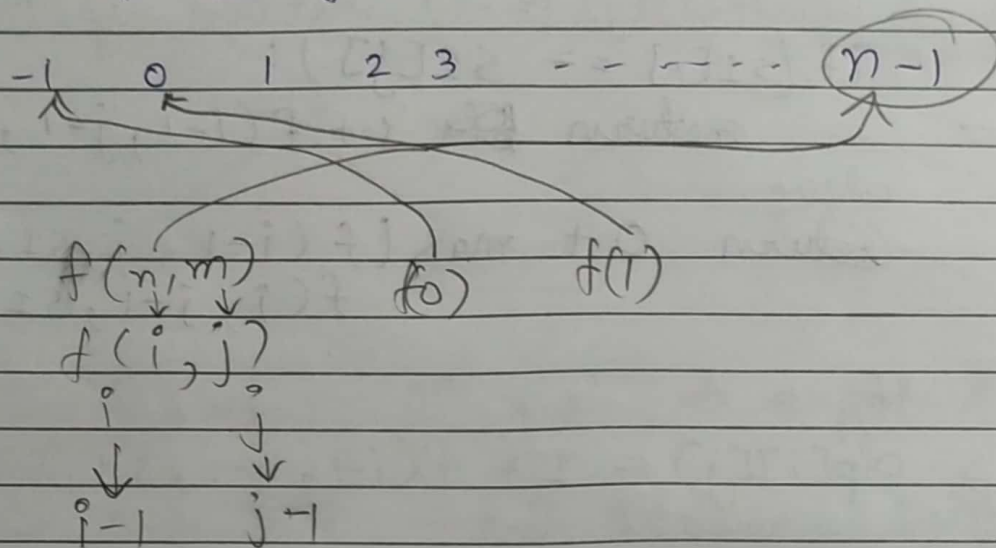 -1 0 1 2 3 - - - - - · · n-1
f(n,m) f(0) f(1)
f(i,j)
i j
i-1 j-1